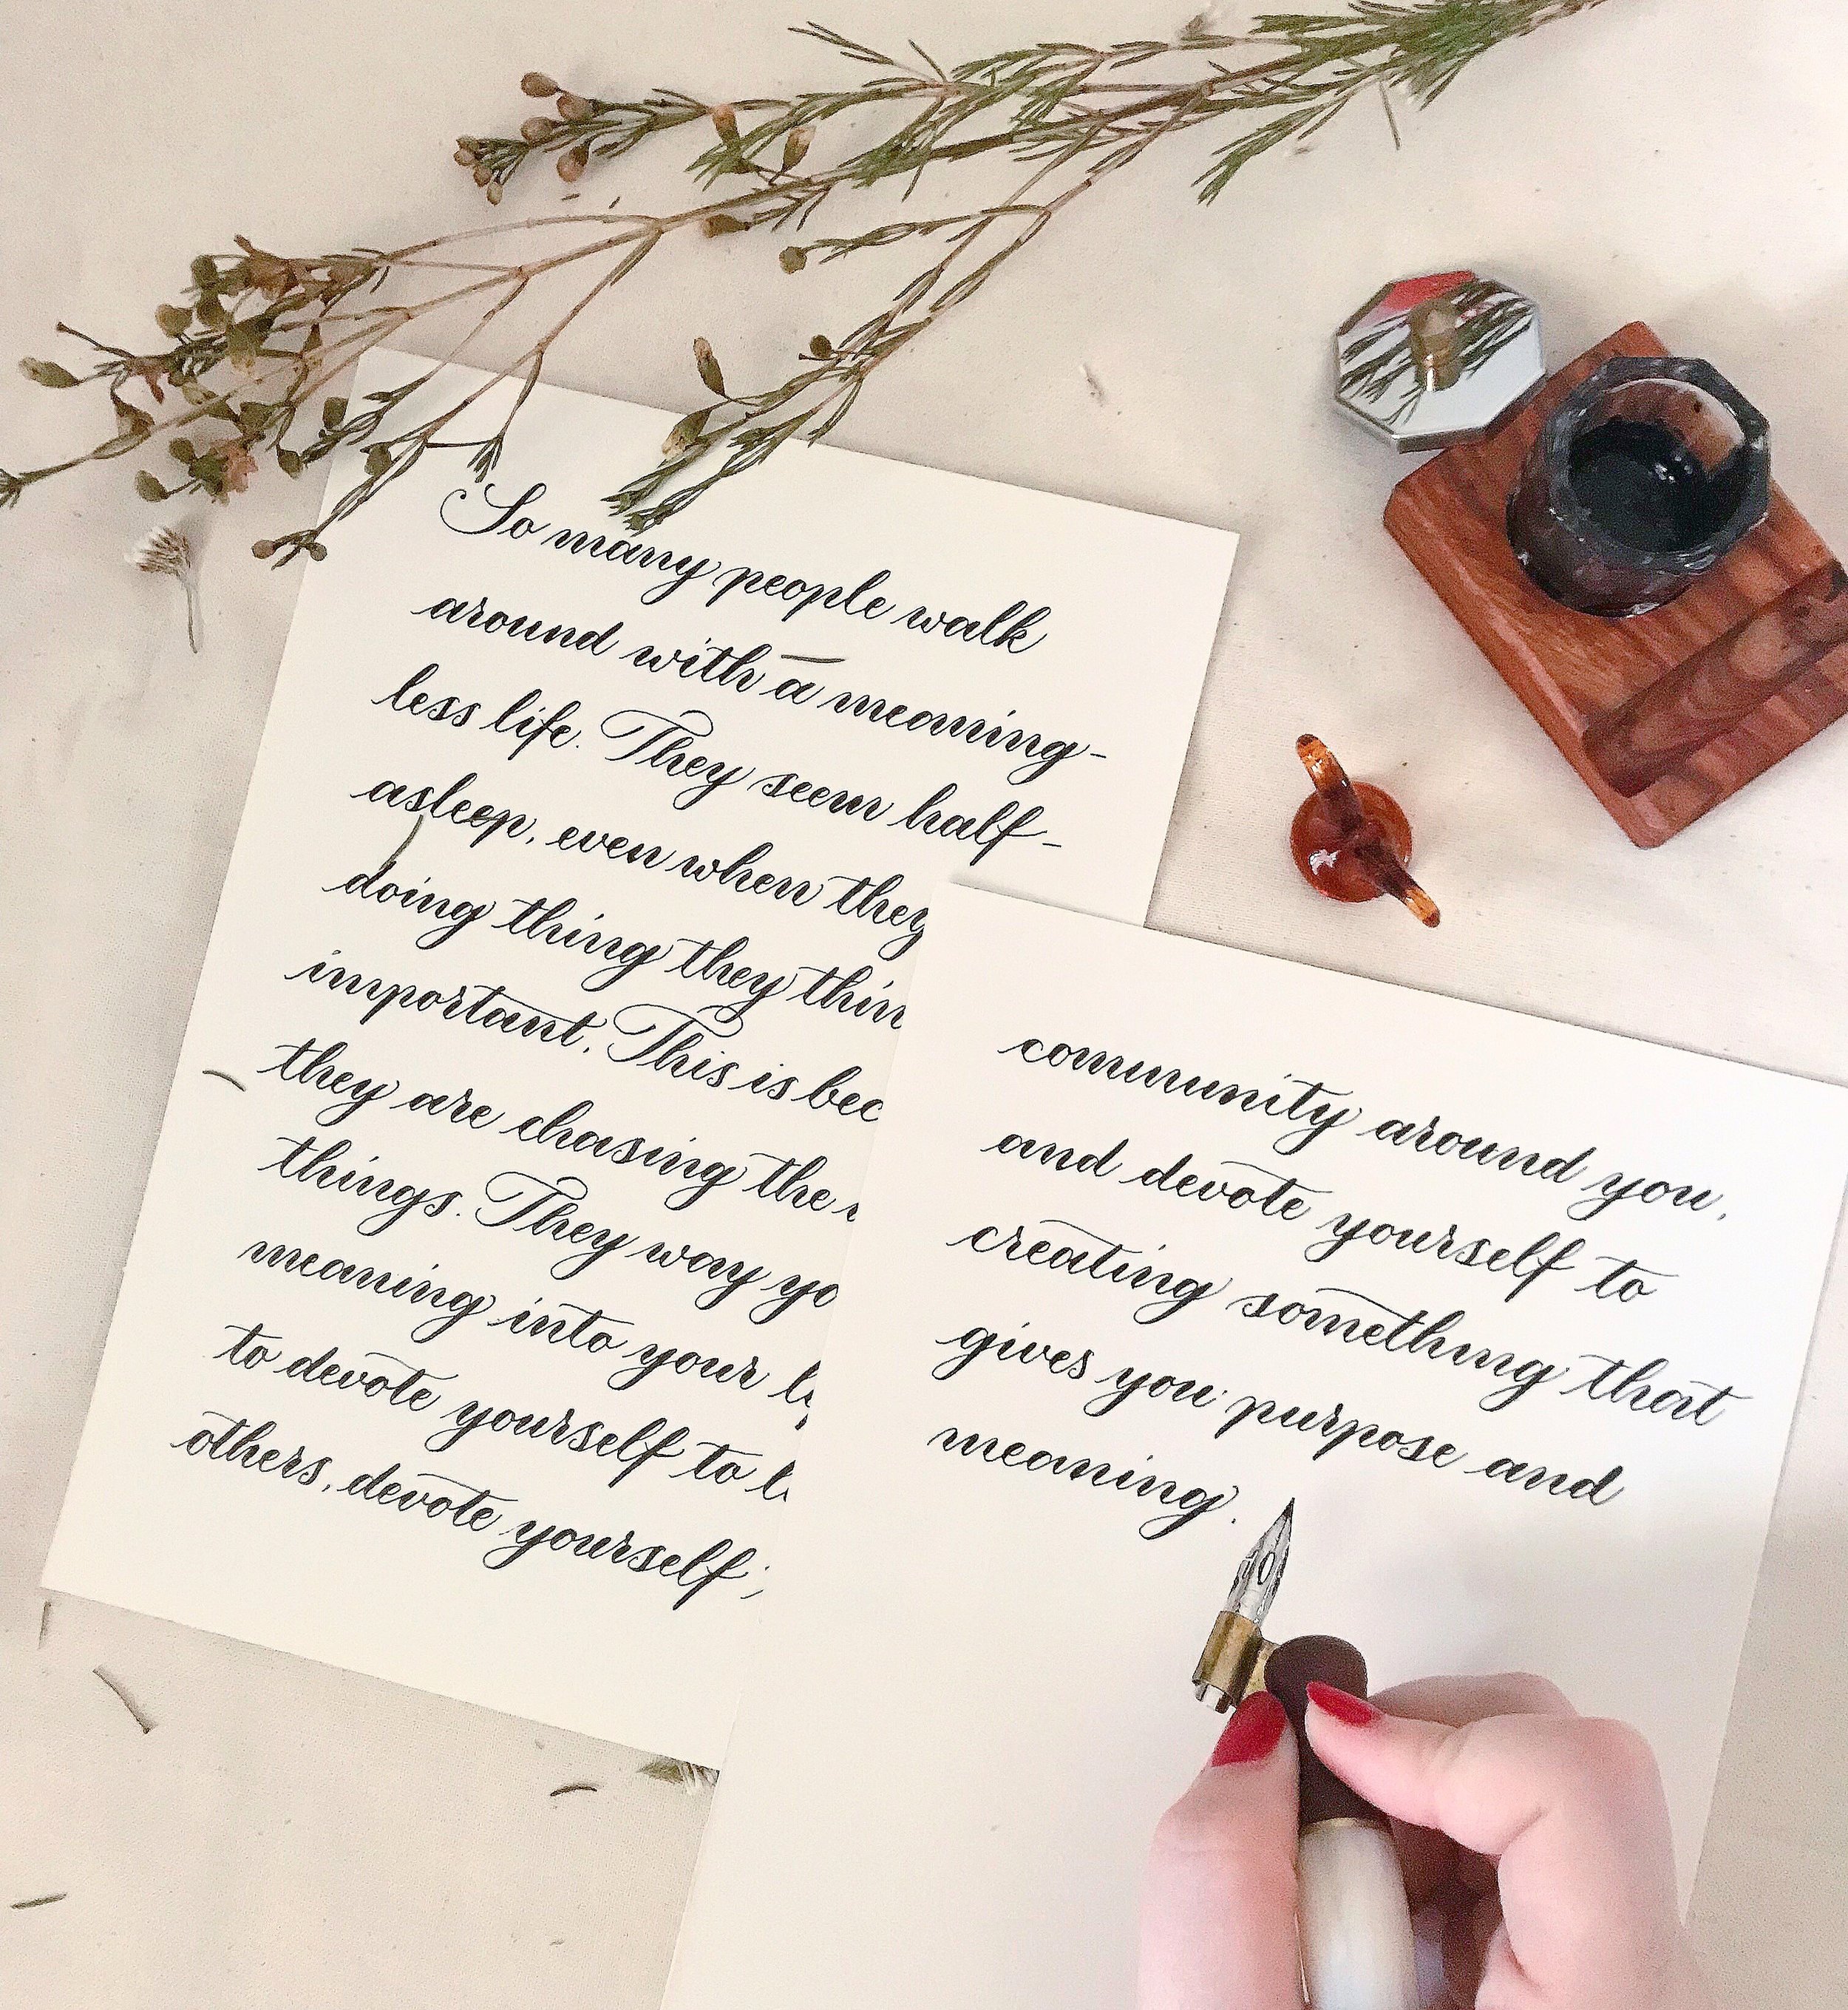 So many people walk
around with a meaning-
less life. They seem half-
asleep, even when they
doing thing they thin
important. This is bec
they are chasing the
things. They way yo
meaning into your
to devote yourself to
others, devote yourself
community around you,
and devote yourself to
creating something that
gives you purpose and
meaning.